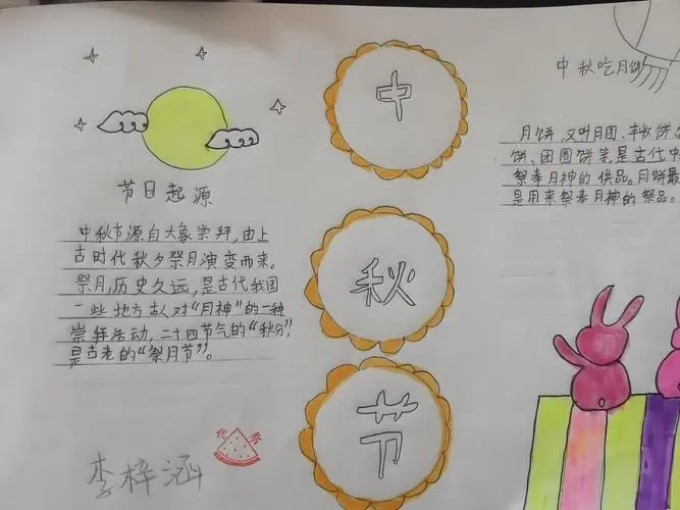 节日起源
中秋节源自天象崇拜,由上
古时代秋夕祭月演变而来。
祭月,历史久远,是古代我国
一些地方古人对“月神”的一种
崇拜活动,二十四节气的“秋分”,
是古老的“祭月节”。
李梓涵
优秀
中
秋
节
中秋吃月饼
月饼,又叫月团、丰收饼、
饼、团圆饼等,是古代中
祭奉月神的供品。月饼最
是用来祭奉月神的祭品。